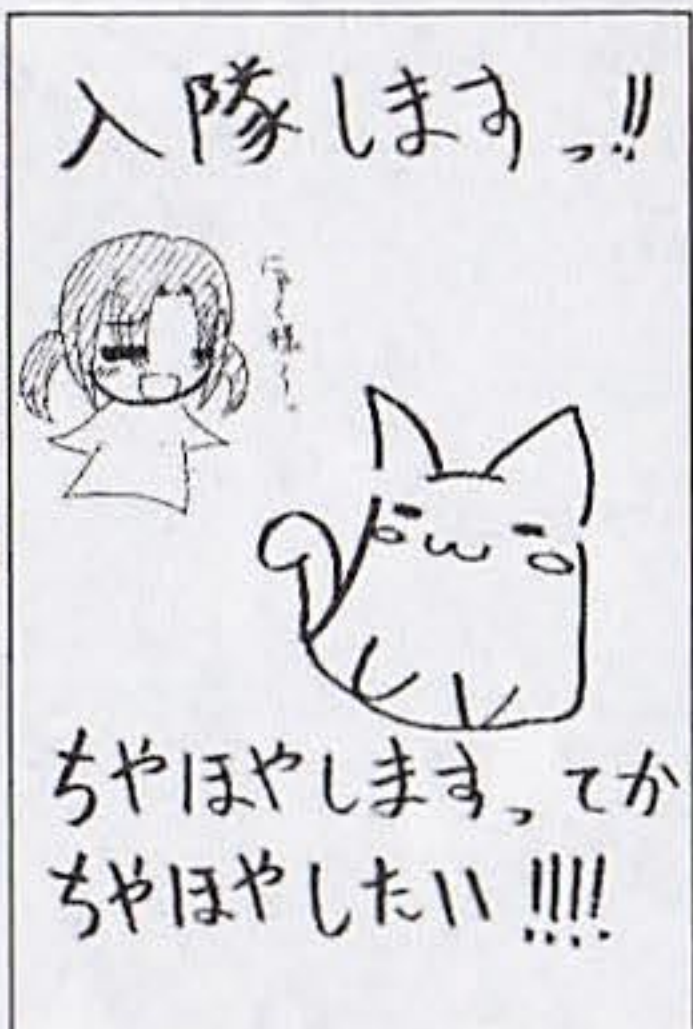 入隊しますっ!!
にゃ〜様〜。
ちやほやしますってか
ちやほやしたい!!!!